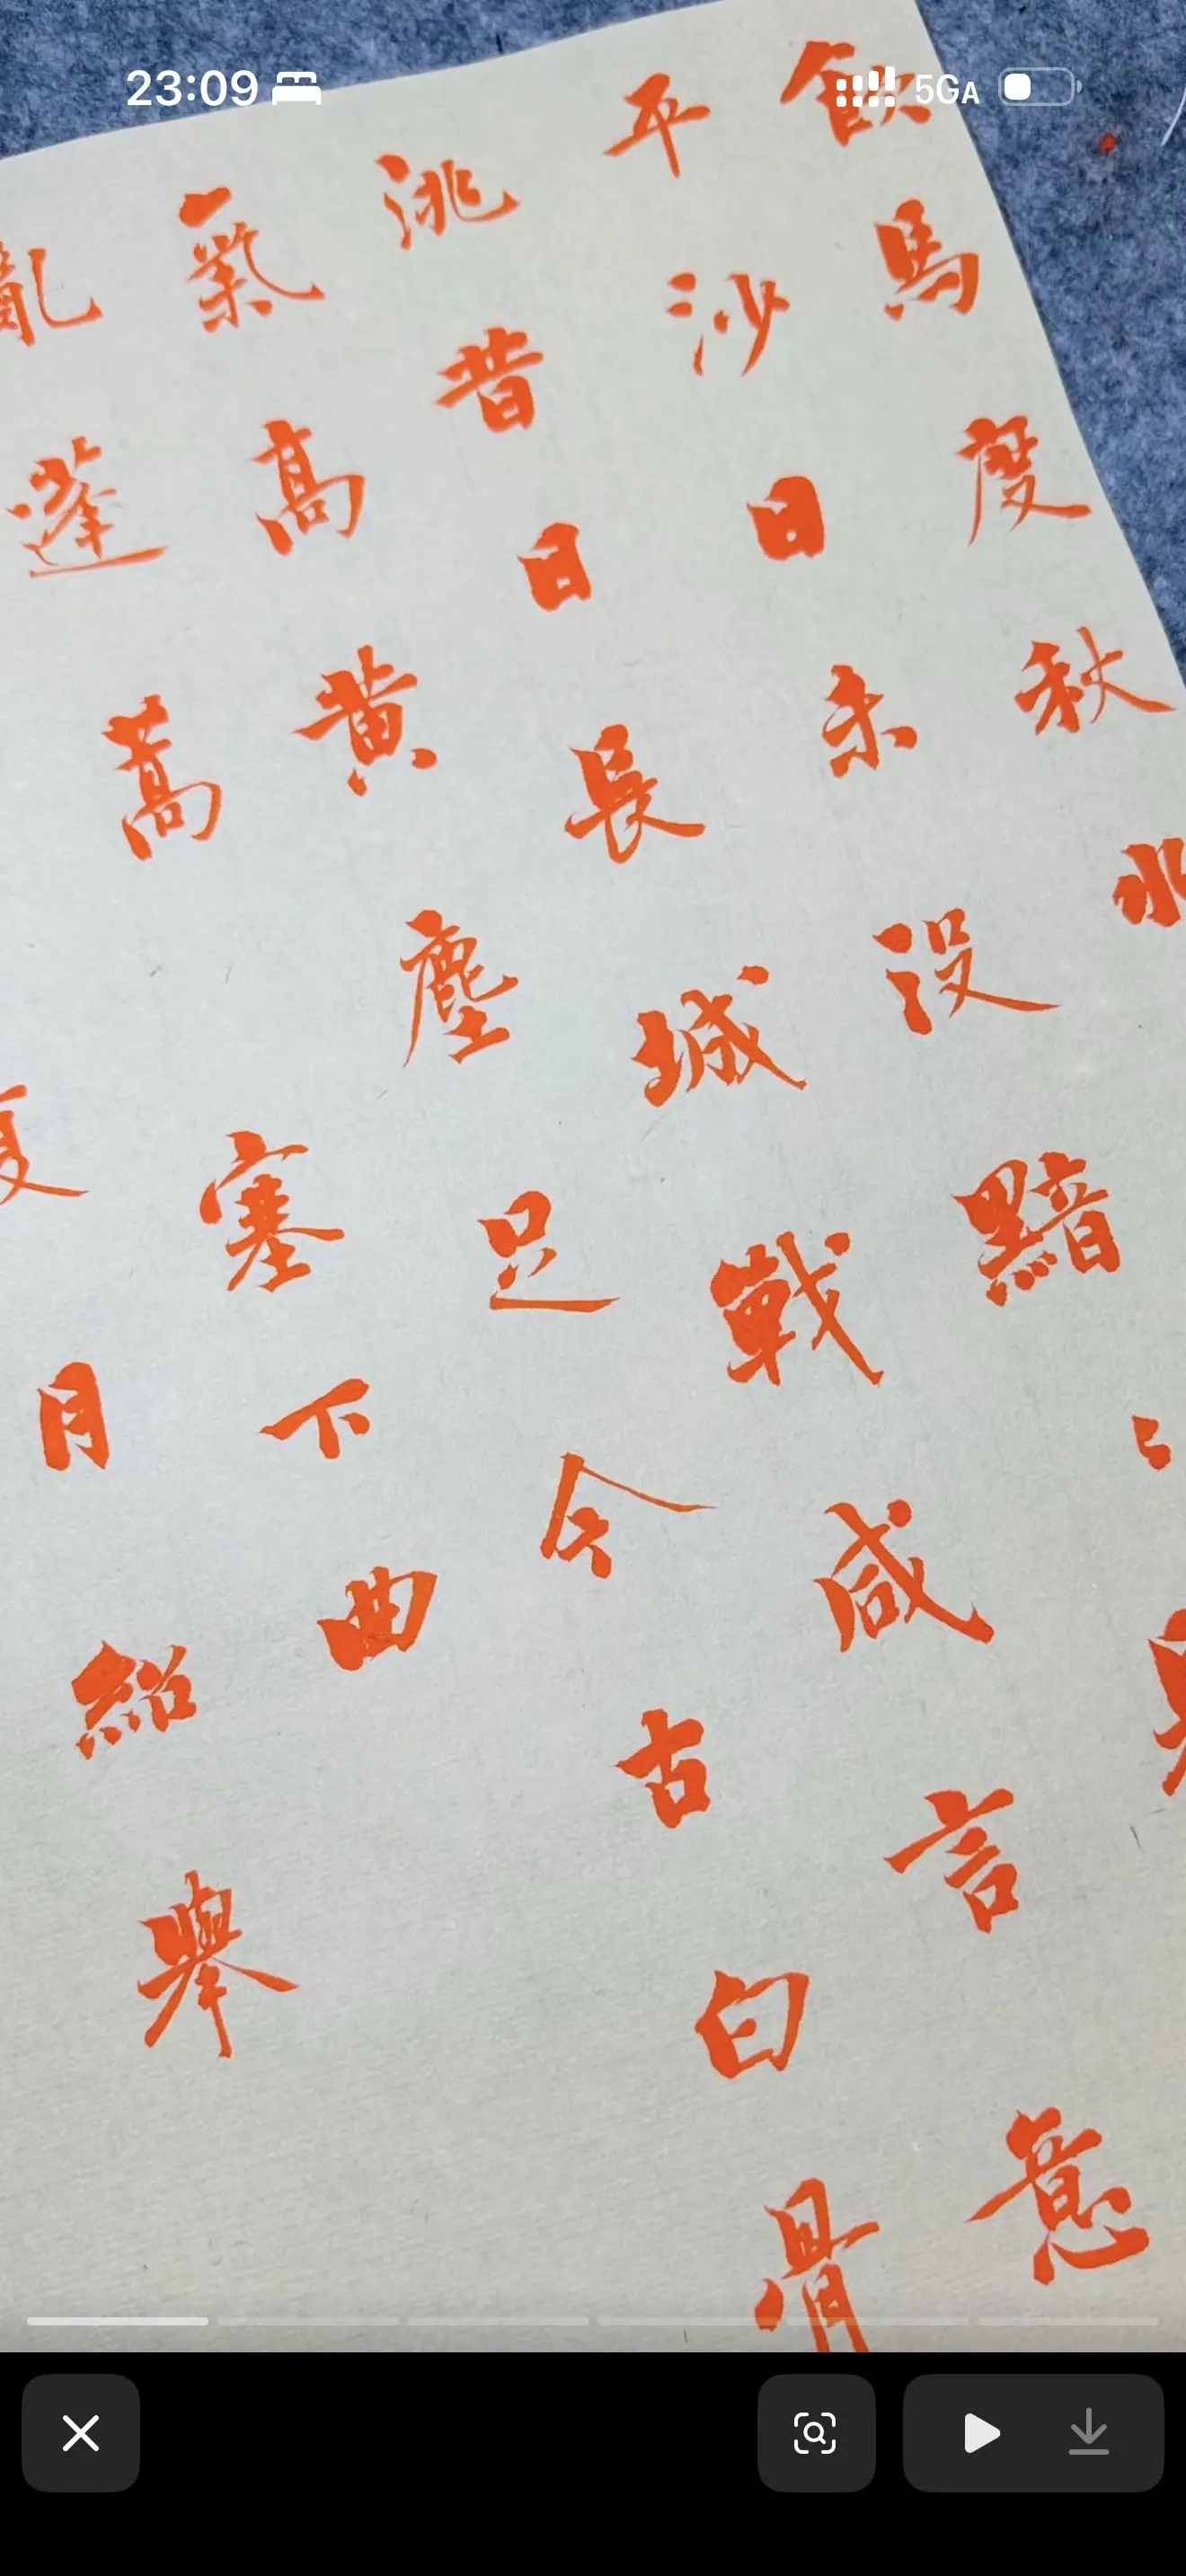 23:09 5GA
飲馬度秋水
平沙日未没黯〻見
洮昔日長城戰咸言意
氣高黃塵足今古白骨
亂蓬蒿 塞下曲
夏月紹舉